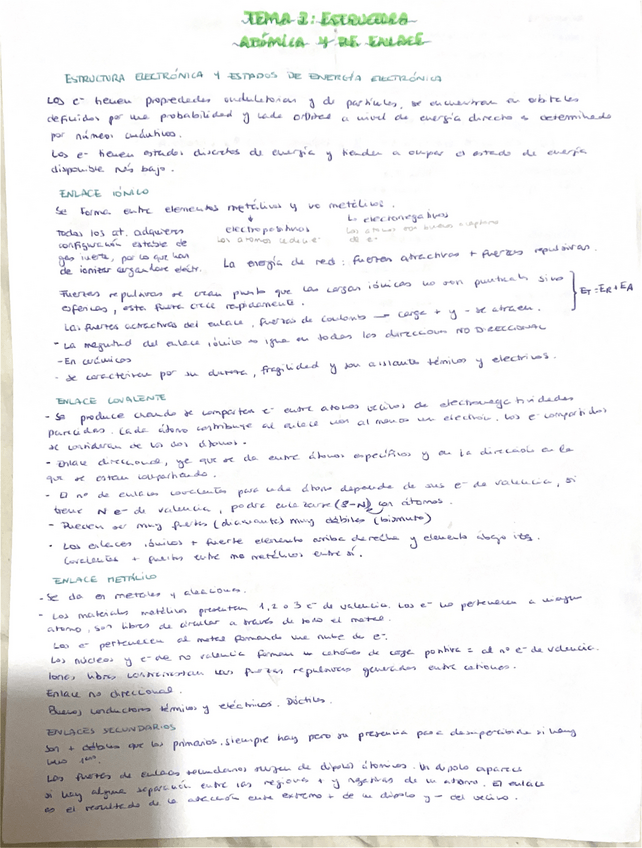 TEMA 2: ESTRUCTURA
ATÓMICA Y DE ENLACE
ESTRUCTURA ELECTRÓNICA Y ESTADOS DE ENERGÍA ELECTRÓNICA
Los e- tienen propiedades ondulatorias y de partículas, se encuentran en orbitales
definidos por una probabilidad y cada orbital a nivel de energía directo determinado
por números cuánticos.
Los e- tienen estados discretos de energía y tienden a ocupar el estado de energía
disponible más bajo.
ENLACE IÓNICO
Se forma entre elementos metálicos y no metálicos.
electropositivos
los átomos ceden e-
electronegativos
los átomos son buenos aceptores
de e-
Todos los at. adquieren
configuración estable de
gas inerte, por lo que han
de ionizar cargandose eléctr.
La energía de red: fuerzas atractivas + fuerzas repulsivas.
Fuerzas repulsivas se crean puesto que las cargas iónicas no son puntuales sino
esféricas, esta fuerza crece rapidamente.
Las fuerzas atractivas del enlace, fuerzas de coulomb → carga + y - se atraen.
ET = ER + EA
- La magnitud del enlace iónico es igual en todas las direcciones NO DIRECCIONAL
- En cerámicos
- Se caracterizan por su dureza, fragilidad y son aislantes térmicos y eléctricos.
ENLACE COVALENTE
- Se produce cuando se comparten e- entre átomos vecinos de electronegatividades
parecidas. Cada átomo contribuye al enlace con al menos un electrón. Los e- compartidos
se consideran de los dos átomos.
- Enlace direccional, ya que se da entre átomos específicos y en la dirección en la
que se están compartiendo.
- El nº de enlaces covalentes para cada átomo depende de sus e- de valencia, si
tiene N e- de valencia, podrá enlazarse (8-N) con átomos.
- Pueden ser muy fuertes (diamante) muy débiles (bismuto)
- Los enlaces iónicos + fuerte elemento arriba derecha y elemento abajo izq.
Covalentes + fuertes entre no metálicos entre sí.
ENLACE METÁLICO
- Se da en metales y aleaciones.
- Los materiales metálicos presentan 1, 2 o 3 e- de valencia. Los e- no pertenecen a ningún
átomo, son libres de circular a través de todo el metal.
Los e- pertenecen al metal formando una nube de e-.
Los núcleos y e- de no valencia forman un cationes de carga positiva = al nº e- de valencia.
fuerzas repulsivas generadas entre cationes.
Enlace no direccional.
Buenos conductores térmicos y eléctricos. Dúctiles.
ENLACES SECUNDARIOS
Son + débiles que los primarios, siempre hay pero su presencia pasa desapercibida si hay
Las fuerzas de enlaces secundarios surgen de dipolos átomicos. Un dipolo aparece
si hay alguna separación entre las regiones + y negativas de un átomo. El enlace
es el resultado de la atracción entre extremo + de un dipolo y - del vecino.